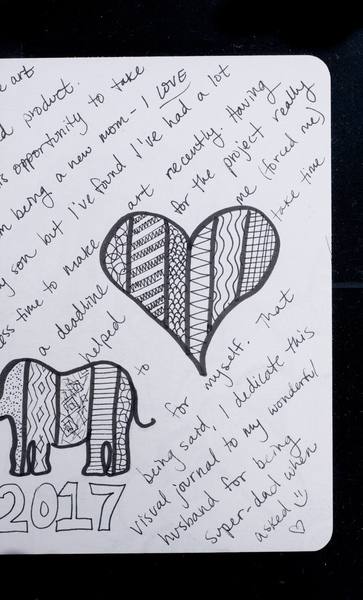 e art
d product.
is opportunity to take
m being a new mom - I LOVE
y son but I've found I've had a lot
ess time to make art recently. Having
a deadline for the project really
helped me (forced me)
to take time
for myself. That
being said, I dedicate this
visual journal to my wonderful
husband for being
super-dad when
asked :)
2017